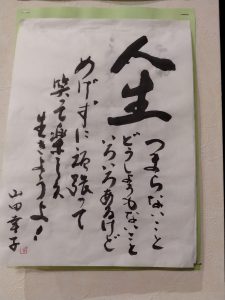 人生
つまらないこと
どうしようもないこと
いろいろあるけど
めげずに頑張って
笑って楽しく
生きようよ！
山田幸子